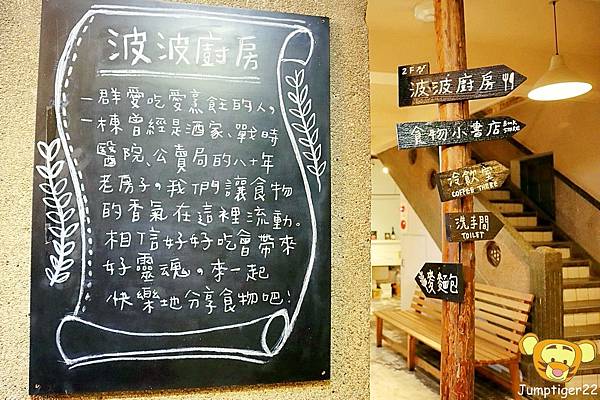 波波廚房
一群愛吃愛烹飪的人,
一棟曾經是酒家、戰時
醫院、公賣局的八十年
老房子,我們讓食物
的香氣在這裡流動。
相信好好吃會帶來
好靈魂。來一起
快樂地分享食物吧!
2F
波波廚房
食物小書店 BOOK STORE
冷飲室
COFFEE THERE
洗手間
TOILET
麥麵包
Jumptiger22